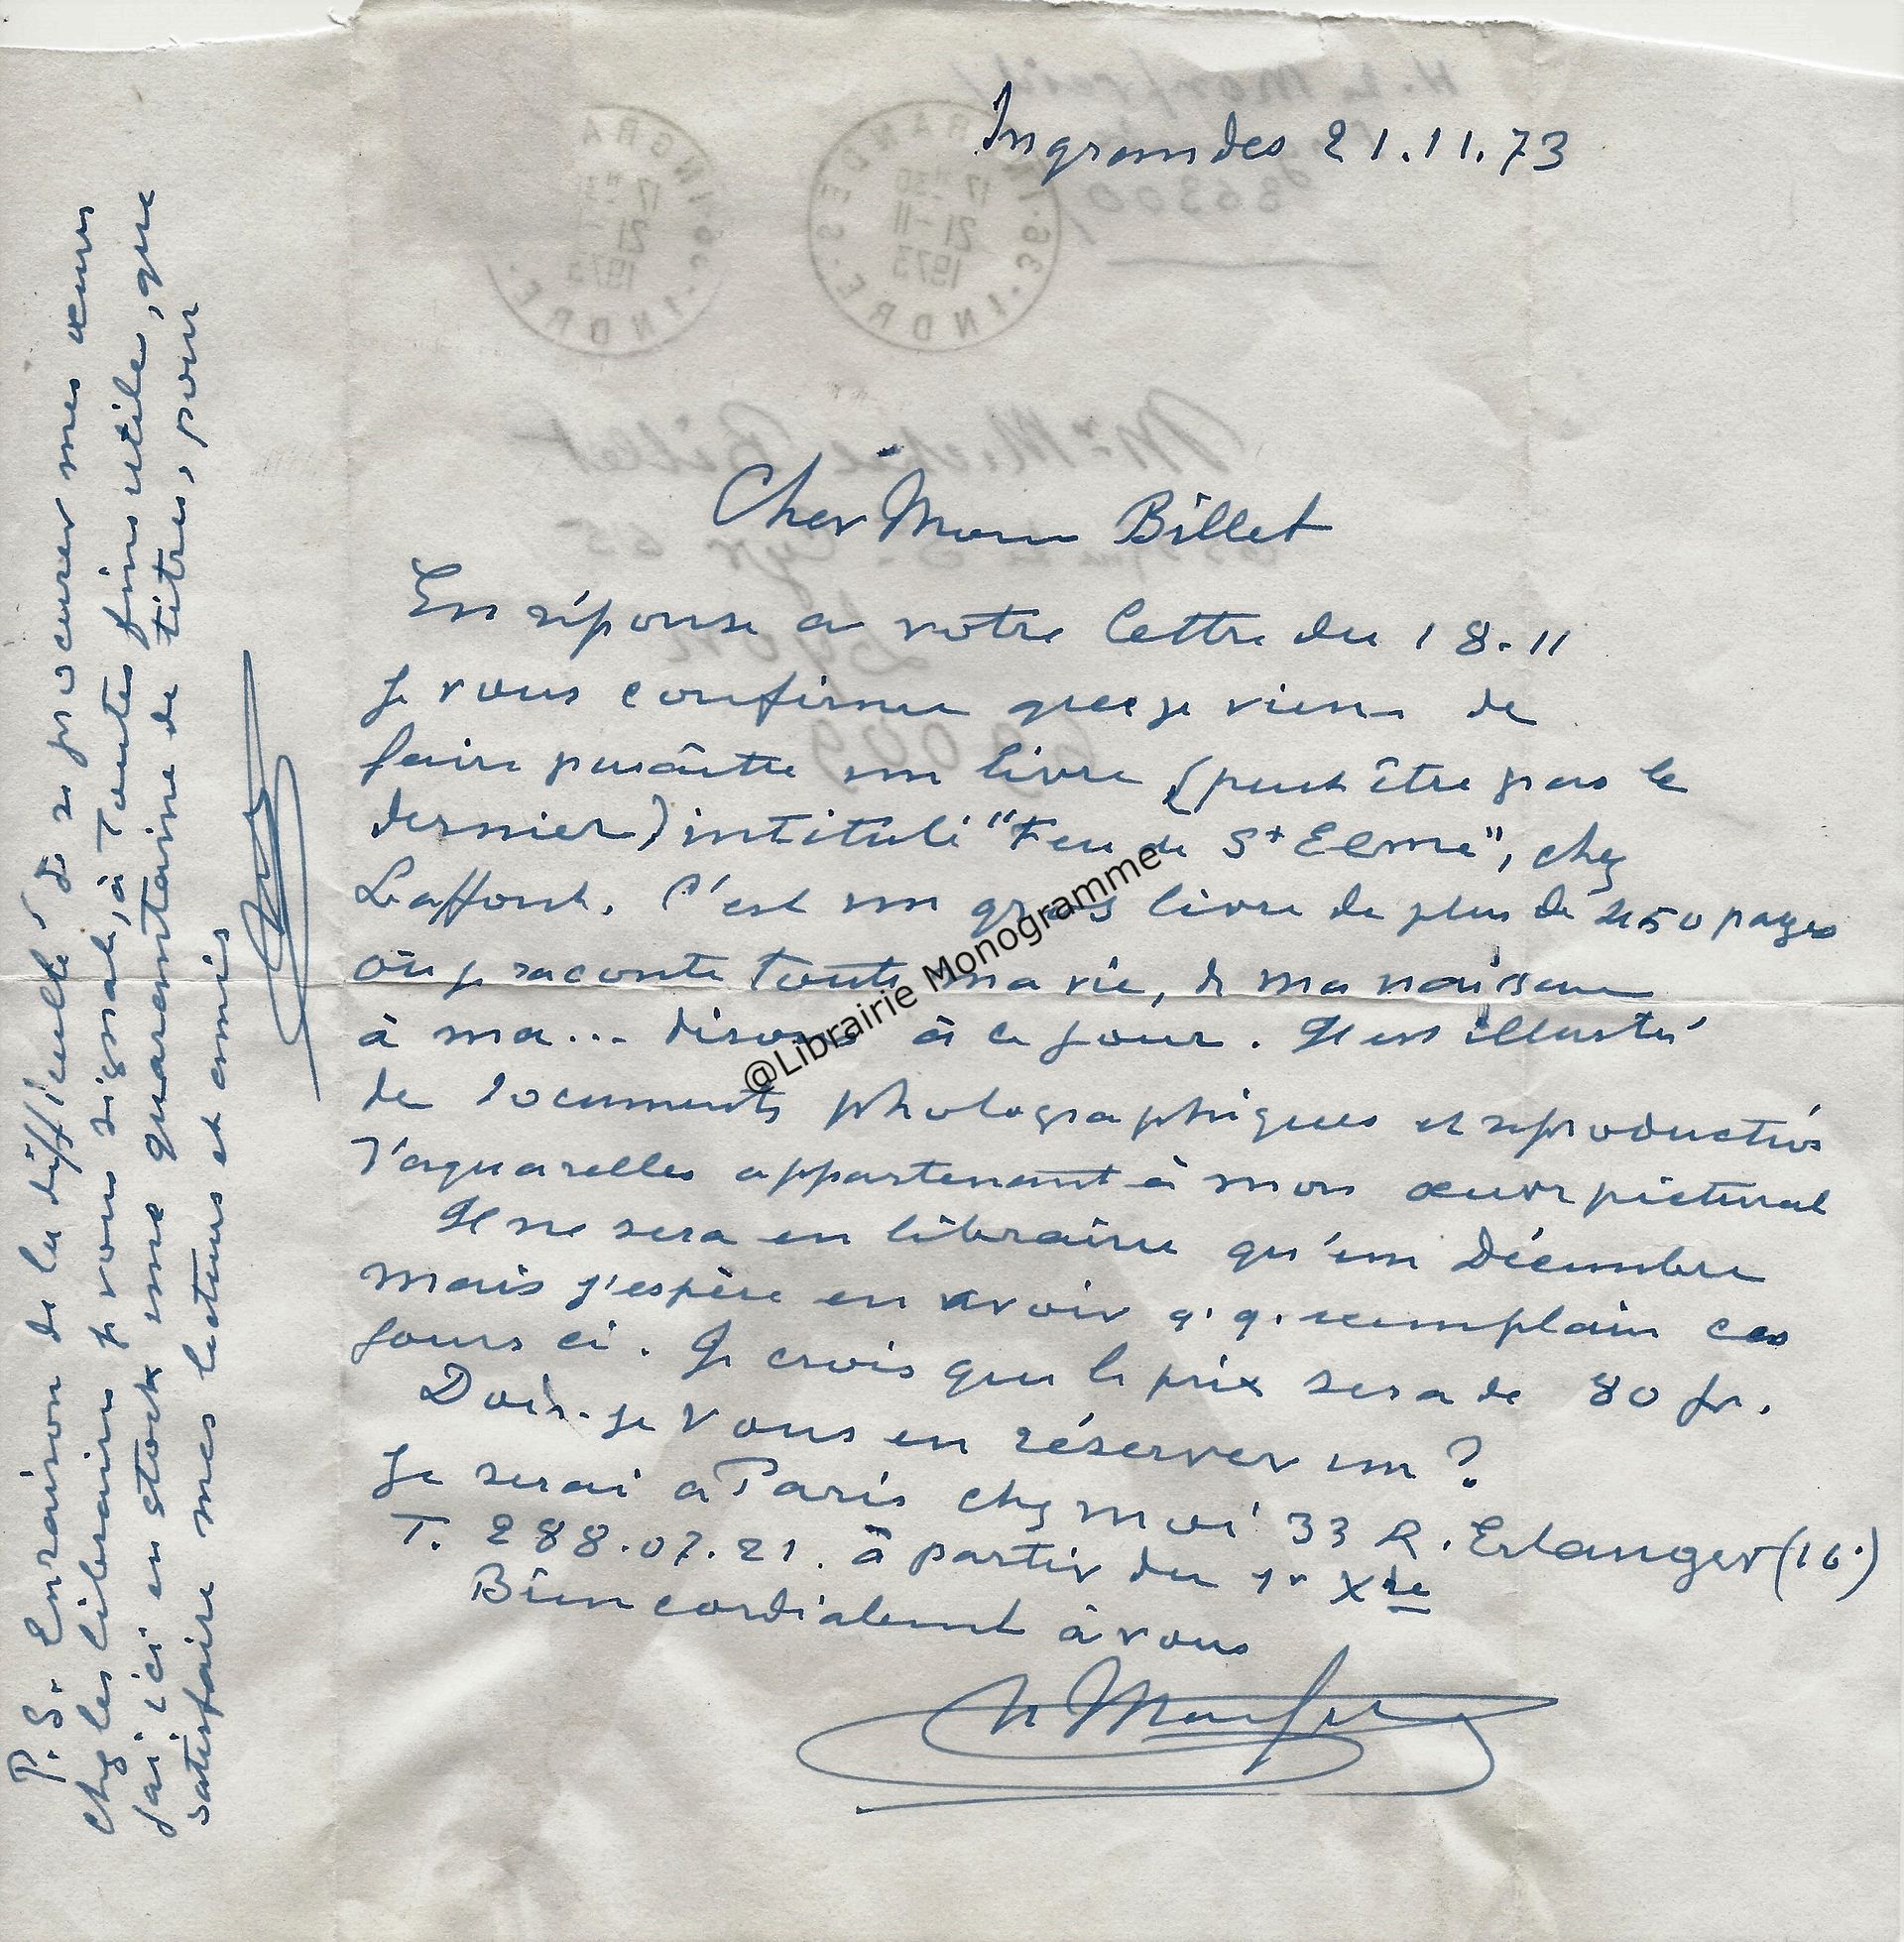 Ingrandes 21.11.73
Cher Mons Billet
En réponse a votre lettre du 18.11
Je vous confirme que je viens de
faire paraître un livre (peut être pas le
dernier) intitulé "Feu de St Elme", chez
Laffont. C'est un gros livre de plus de 450 pages
où je raconte toute ma vie, de ma naissance
à ma... disons à ce jour. Il est illustré
de documents photographiques et reproductions
d'aquarelles appartenant à mon œuvre pictural
Il ne sera en librairie qu'en Décembre
mais j'espère en avoir q.q. exemplaires ces
jours ci. Je crois que le prix sera de 80 fr.
Dois-je vous en réserver un ?
Je serai a Paris chez moi 33 R. Erlanger (16°)
T. 288.07.21. à partir du 1er Xbre
Bien cordialement à vous
H Monfreid
P.S. En raison de la difficulté de se procurer mes œuvres
chez les libraires je vous signale, à toutes fins utiles, que
j'ai ici en stock une quarantaine de titres, pour
satisfaire mes lecteurs et amis
@Librairie Monogramme
H. de Monfreid
36300
INGRANDES
36-INDRE
17H30
21-11
1973
INGRA
36-INDRE
17H3
21-
1973
Mr Michel Billet
Lyon
69009